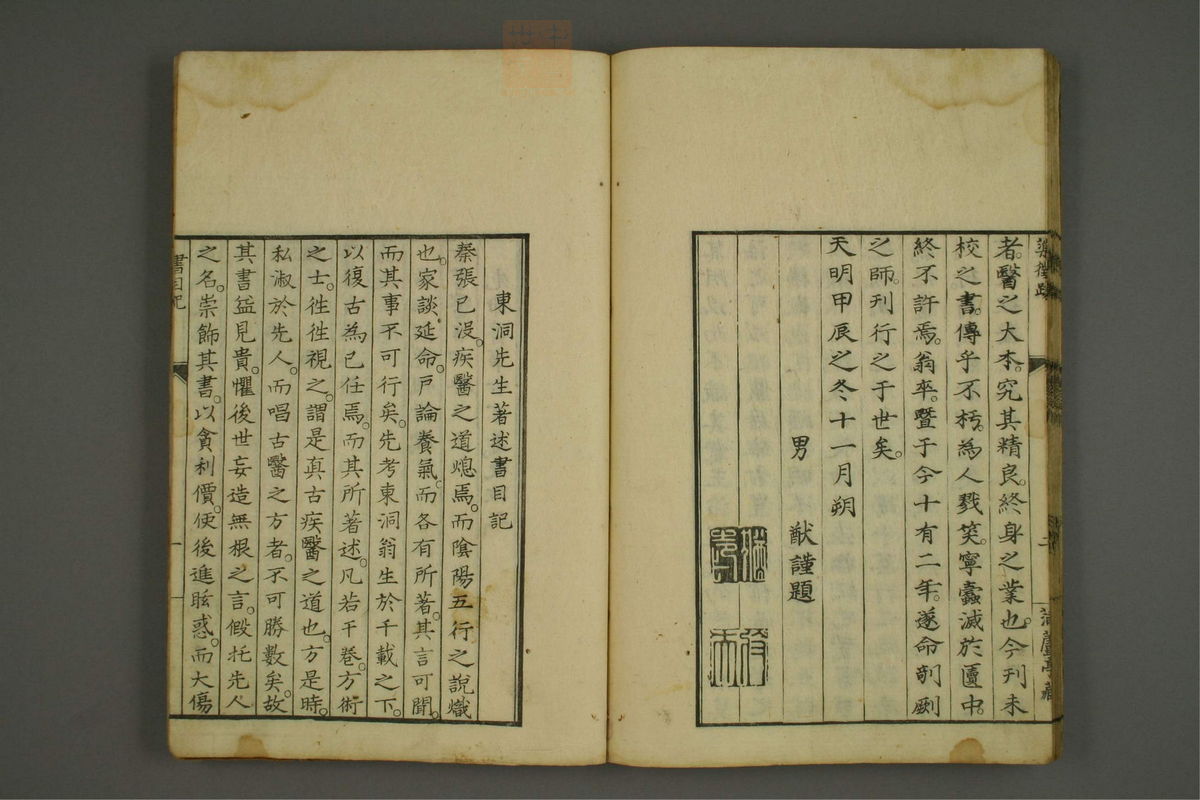 者。醫之大本。究其精良。終身之業也。今刊未
校之書。傳乎不朽。為人戮笑。寧蠹滅於匵中。
終不許焉。翁卒。暨于今十有二年。遂命剞劂
之師。刊行之于世矣。
天明甲辰之冬十一月朔
男　猷謹題
東洞先生著述書目記
秦張已沒。疾醫之道熄焉。而陰陽五行之說熾
也。家談延命。戶論養氣。而各有所著。其言可聞。
而其事不可行矣。先考東洞翁生於千載之下。
以復古為已任焉。而其所著述。凡若干卷。方術
之士。徃徃視之。謂是真古疾醫之道也。方是時。
私淑於先人。而唱古醫之方者。不可勝數矣。故
其書益見貴。懼後世妄造無根之言。假托先人
之名。崇飾其書。以貪利價。使後進眩惑。而大傷
書目記
一